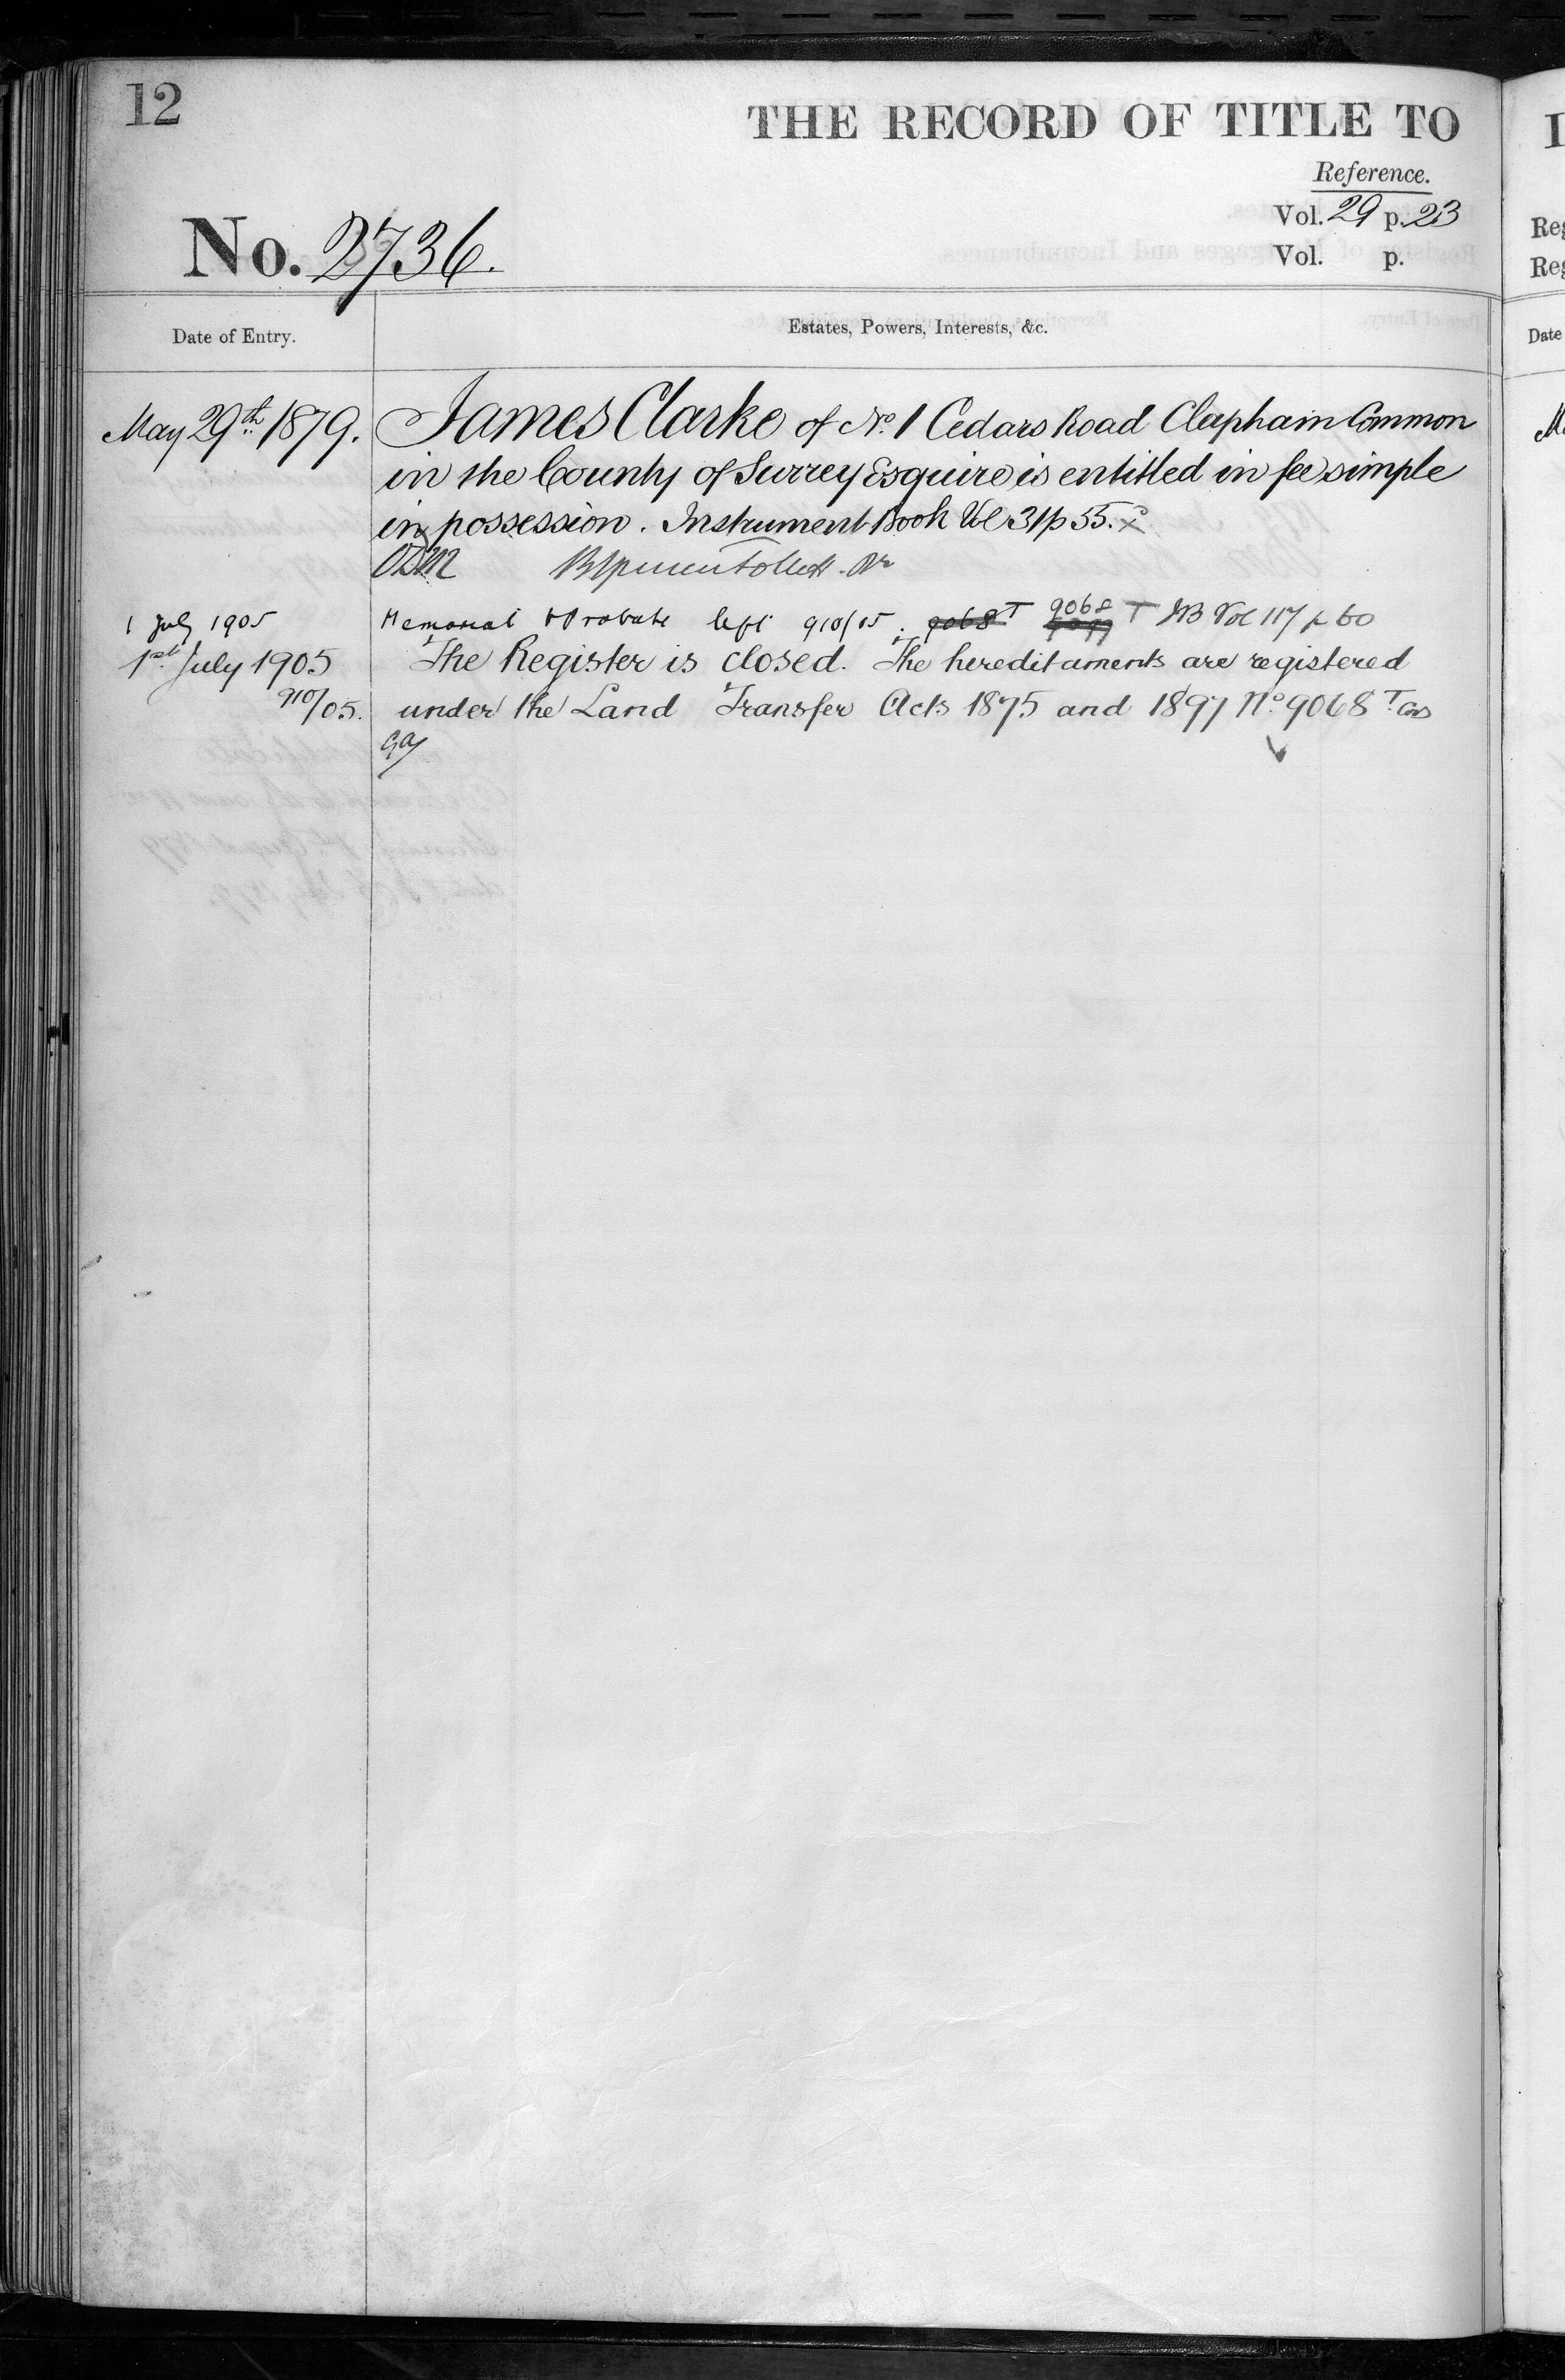 12
THE RECORD OF TITLE TO
Reference.
Vol. 29 p. 23
No. 2736.
Vol. p.
Date of Entry.
Estates, Powers, Interests, &c.
May 29th 1879.
James Clarke of No. 1 Cedars Road Clapham Common
in the County of Surrey Esquire is entitled in fee simple
in possession. Instrument Book Vol 31 p 55.
1 July 1905
Memorial & Probate left 910/05. 9068 T 9068 T IB Vol 117 p 60
1st July 1905
The Register is closed. The hereditaments are registered
910/05.
under the Land Transfer Acts 1875 and 1897 No. 9068 T.